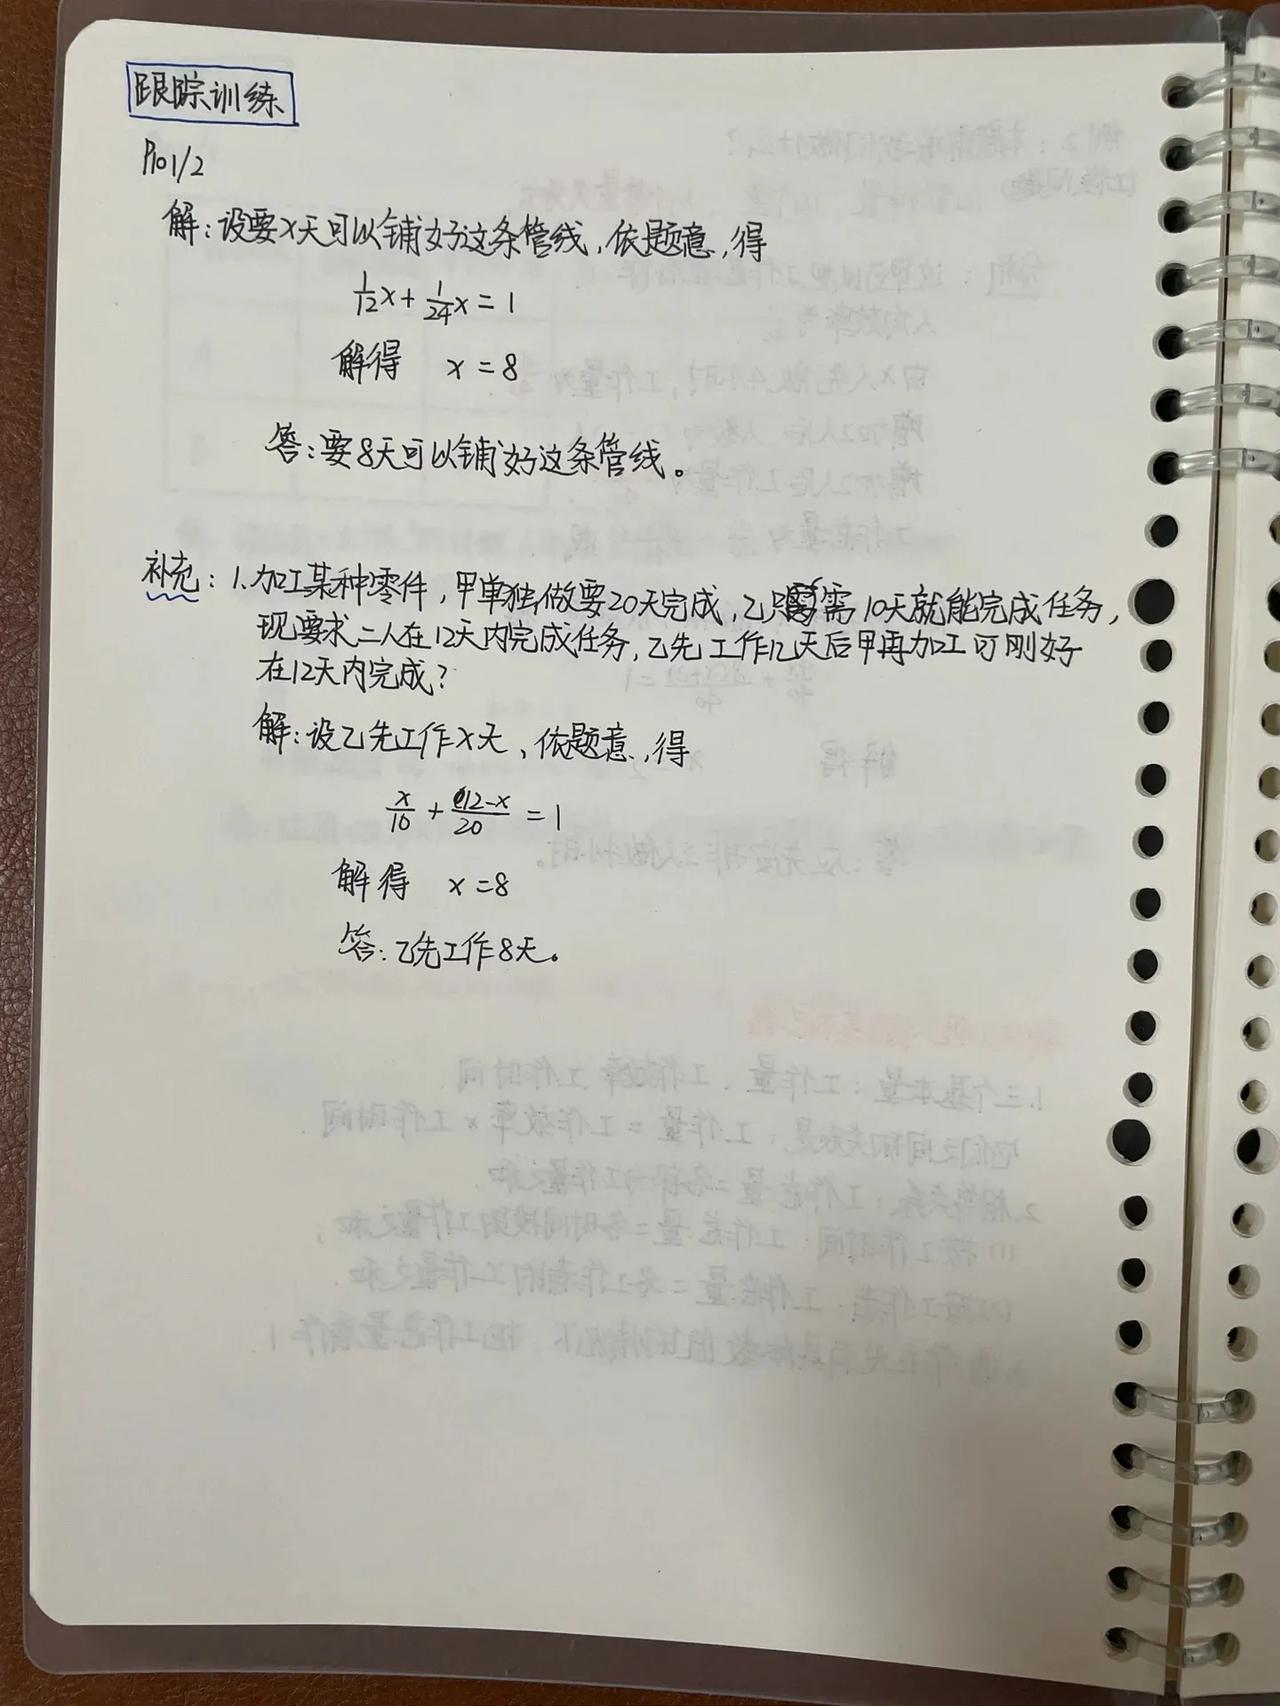 跟踪训练
P101/2
解:设要x天可以铺好这条管线,依题意,得
1/12x+1/24x=1
解得 x=8
答:要8天可以铺好这条管线。
补充:1.加工某种零件,甲单独做要20天完成,乙只需10天就能完成任务,
现要求二人在12天内完成任务,乙先工作几天后甲再加工可刚好
在12天内完成?
解:设乙先工作x天,依题意,得
x/10+12-x/20=1
解得 x=8
答:乙先工作8天。